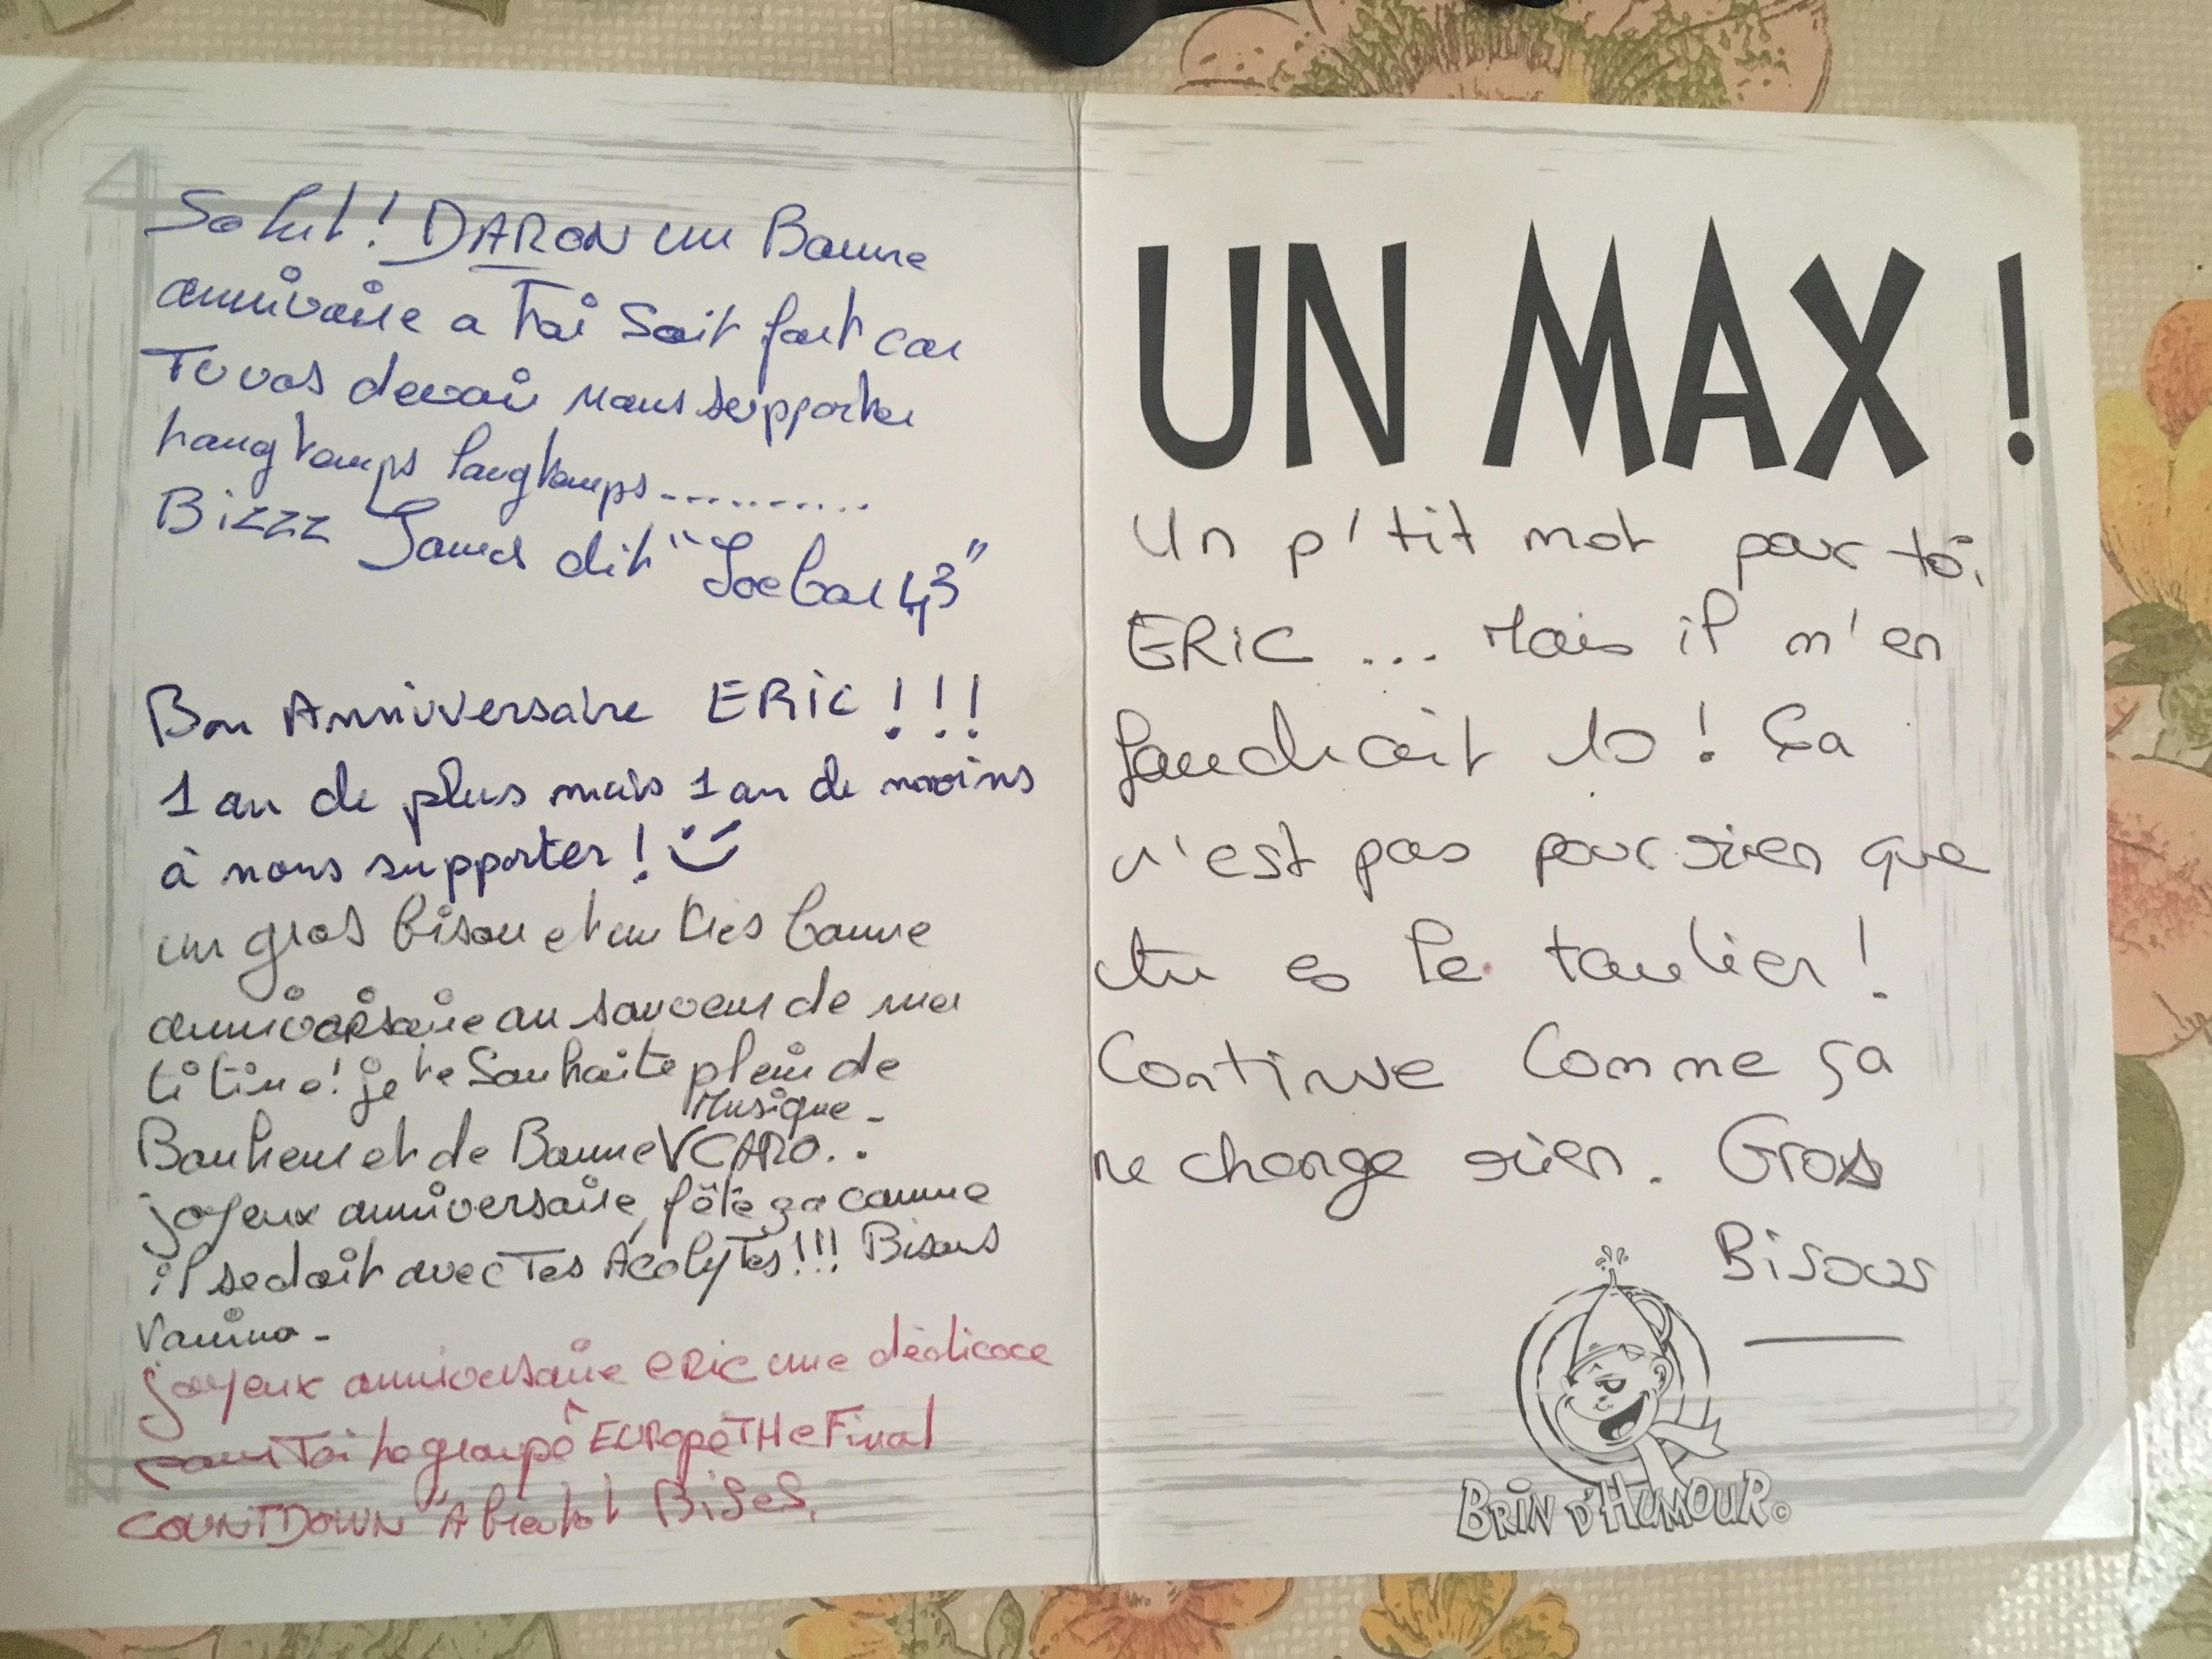 Salut! DARON un Bonne
annivaire a Toi Soit fort car
Tu vas devoir nous supporter
longtemps longtemps..........
Bizzz James dit "Joe bar 43"
Bon Anniversaire ERIC!!!
1 an de plus mais 1 an de moins
à nous supporter!
un gros bisou et un très bonne
anniversaire au sauveur de ma
titine! je te Souhaite plein de
Musique -
Bonheur et de Bonne V CARO..
joyeux anniversaire, fête ça comme
il se doit avec Tes Acolytes!!! Bisous
Vanina -
joyeux anniversaire ERIC une dédicace
pour Toi le groupe EUROPE THE Final
COUNTDOWN" A bientot Bises.
UN MAX !
Un p'tit mot pour toi
ERIC ... Mais il m'en
faudrait 10 ! Ça
n'est pas pour rien que
tu es le taulier !
Continue Comme ça
ne change rien. Gros
Bisous
BRIN D'HUMOUR©